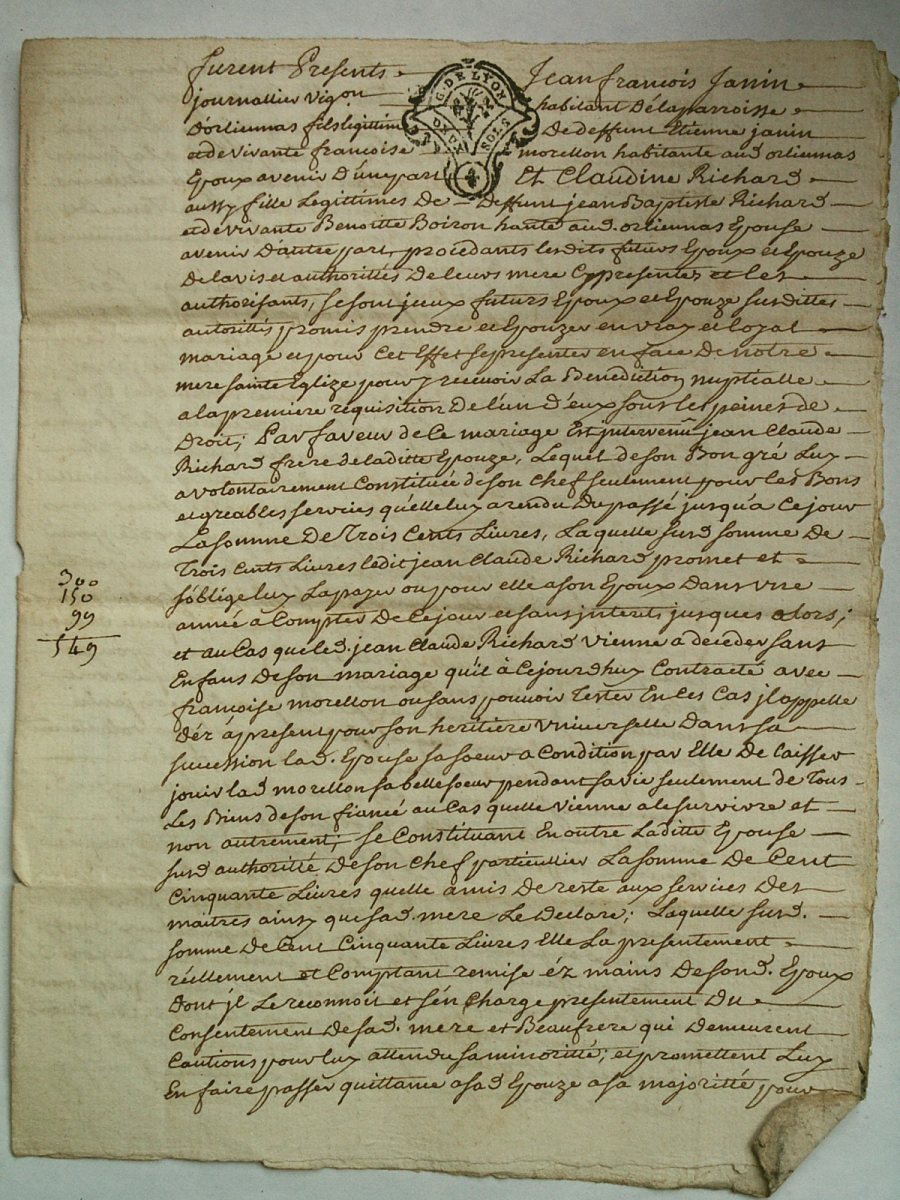 furent Presents Jean francois Janin
journallier vigon habitant Délaparroisse
Dorliennas fils legittime De deffunt Etienne janin
et de vivante francoise morellon habitante aud orliennas
Epoux avenir D'une part Et Claudine Richard
aussy fille Legittimes De Deffunt jean Baptiste Richard
et de vivante Benoitte Boiron hante aud orliennas Epouse
avenir D'autre part, procedants lesdits futurs Epoux et Epouze
De lavis et authorittés De leurs mere Cy presentes et les
authorisants, se sont jceux futurs Epoux et Epouze susdittes
autorittés promis prendre et Epouzer en vray et loyal
mariage et pour Cet Effet se presenter en face De notre
mere sainte Eglize pour y recevoir La Benediction nuptialle
a la premiere requisition De l'un D'eux sous les peines de
Droit; Par faveur de ce mariage Est jntervenu jean Claude
Richard frere de laditte Epouze, Lequel de son Bon gré Luy
a volontairement Constituée de son Chef seulement pour les Bons
et greables services quelle luy a rendu Du passé jusqu'a Ce jour
La somme De Trois Cents Livres, Laquelle susd somme De
Trois Cents Livres ledit jean Claude Richard promet et
s'oblige luy La payer ou pour elle a son Epoux Dans vne
année a Compter De Ce jour et sans jnterets jusques alors;
et au Cas que led. jean Claude Richard Vienne a deceder sans
Enfans De son mariage qu'il à Cejourd'huy Contracté avec
françoise morellon ou sans pouvoir Tester En les Cas jl appelle
Déz à present pour son heritiere Vniverselle Dans sa
succession lad. Epouse sa soeur a Condition par Elle De laisser
jouir lad morellon sa belle soeur pendant sa vie seulement de Tous
Les Biens de son fiancé au Cas quelle Vienne a le survivre et
non autrement; se Constituant En outre Laditte Epouse
susd authorité De son Chef particullier La somme De Cent
Cinquante Livres quelle a mis De reste aux services Des
maitres ainsy que sad. mere Le Declare; Laquelle susd.
somme De Cent Cinquante Livres Elle La presentement
réellement et Comptant remise éz mains De sond. Epoux
Dont jl Le reconnoit et s'en Charge presentement Du
Consentement De sad. mere et Beaufrere qui Demeurent
Cautions pour luy attendu sa minoritté; et promettent Luy
En faire passer quittance a sad Epouze a sa majoritté pour
G. DE LYON
DEUX SOLS
4
300
150
99
549